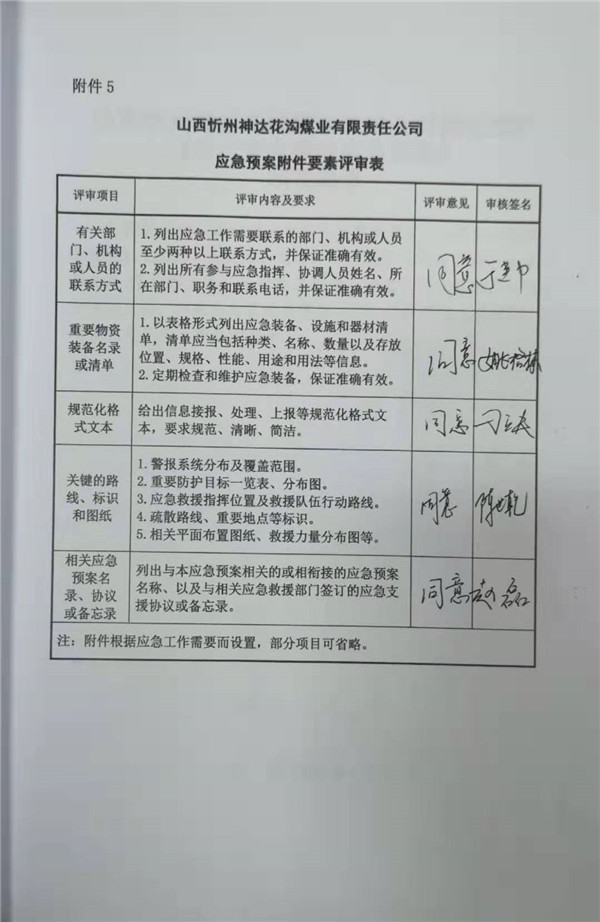 附件 5
山西忻州神达花沟煤业有限责任公司
应急预案附件要素评审表
评审项目 评审内容及要求 评审意见 审核签名
有关部
门、机构
或人员的
联系方式
1.列出应急工作需要联系的部门、机构或人员
至少两种以上联系方式，并保证准确有效。
2.列出所有参与应急指挥、协调人员姓名、所
在部门、职务和联系电话，并保证准确有效。
同意
重要物资
装备名录
或清单
1.以表格形式列出应急装备、设施和器材清
单，清单应当包括种类、名称、数量以及存放
位置、规格、性能、用途和用法等信息。
2.定期检查和维护应急装备，保证准确有效。
同意
规范化格
式文本
给出信息接报、处理、上报等规范化格式文
本，要求规范、清晰、简洁。
同意
关键的路
线、标识
和图纸
1.警报系统分布及覆盖范围。
2.重要防护目标一览表、分布图。
3.应急救援指挥位置及救援队伍行动路线。
4.疏散路线、重要地点等标识。
5.相关平面布置图纸、救援力量分布图等。
同意
相关应急
预案名
录、协议
或备忘录
列出与本应急预案相关的或相衔接的应急预案
名称、以及与相关应急救援部门签订的应急支
援协议或备忘录。
同意 赵磊
注：附件根据应急工作需要而设置，部分项目可省略。